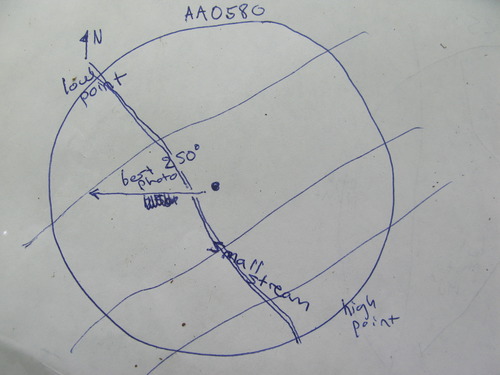 AA0580
N
low
point
250°
best
photo
small
stream
high
point